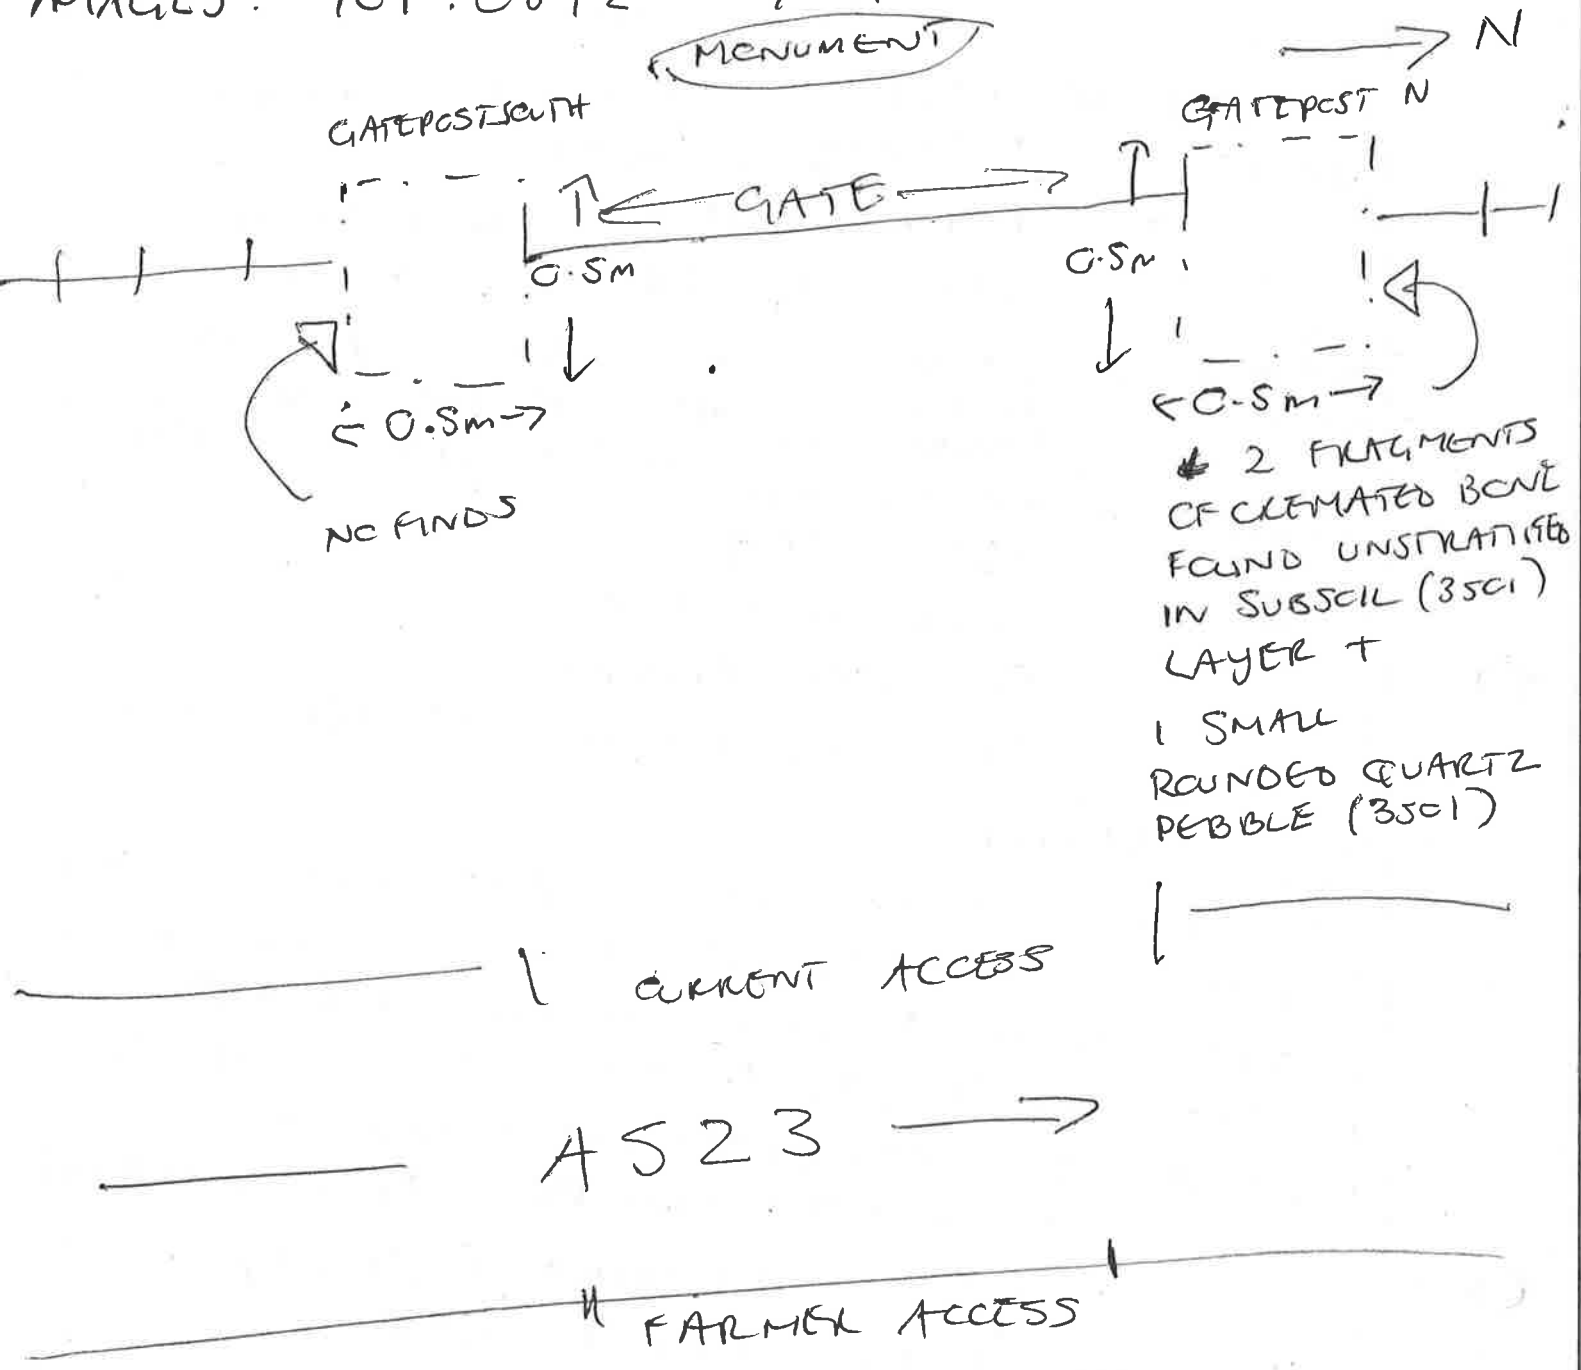 IMAGES:
MONUMENT
N
GATEPOST SOUTH
GATEPOST N
GATE
0.5m
0.5m
0.5m
0.5m
NO FINDS
2 FRAGMENTS
OF CREMATED BONE
FOUND UNSTRATIFIED
IN SUBSOIL (3501)
LAYER +
1 SMALL
ROUNDED QUARTZ
PEBBLE (3501)
CURRENT ACCESS
A523
FARMER ACCESS